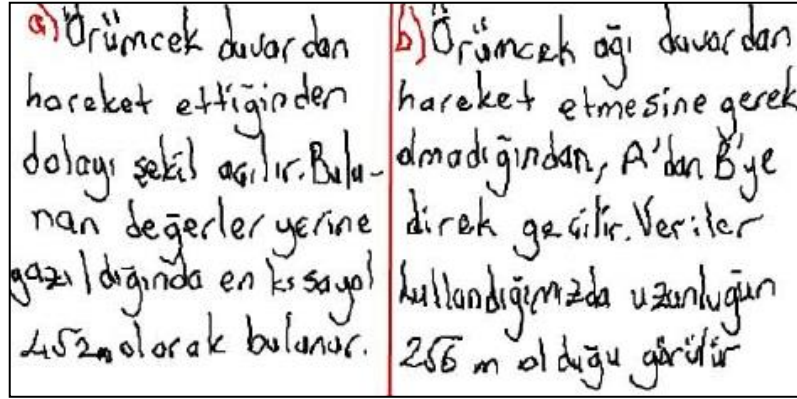 a) Örümcek duvardan
hareket ettiğinden
dolayı şekil açılır. Bulu-
nan değerler yerine
yazıldığında en kısa yol
4√2 m olarak bulunur.
b) Örümcek ağı duvardan
hareket etmesine gerek
olmadığından, A'dan B'ye
direk geçilir. Veriler
kullandığımızda uzunluğun
2√6 m olduğu görülür